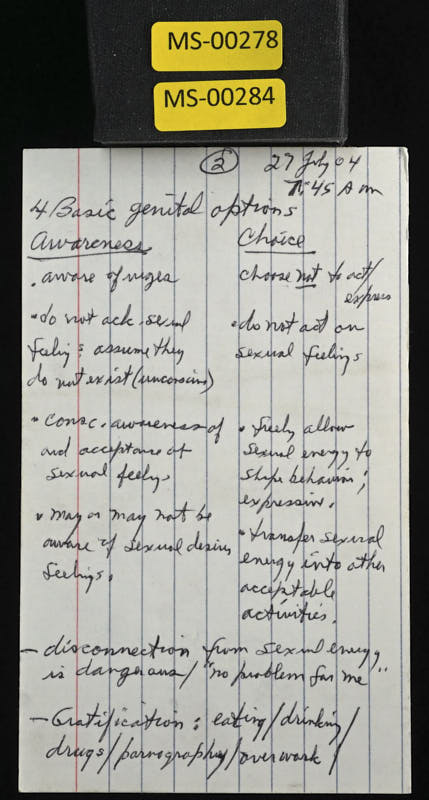 MS-00278
MS-00284
2
27 July 04
7:45 Am
4 Basic genital options
Awareness
Choice
. aware of urges
choose not to act/
express
• do not ack. sexual
feelings assume they
do not exist (unconscious)
• do not act on
sexual feelings
• consc. awareness of
and acceptance of
sexual feelings
• freely allow
sexual energy to
shape behavior;
expression.
• may or may not be
aware of sexual desires
feelings.
• transfer sexual
energy into other
acceptable
activities.
— disconnection from sexual energy
is dangerous/ "no problem for me"
— Gratification: eating/drinking/
drugs/pornography/overwork/